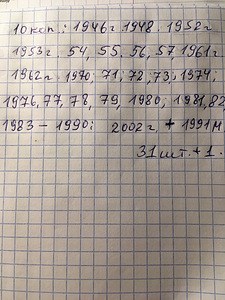 10 коп.: 1946г 1948. 1952г
1953г. 54, 55. 56, 57, 1961г
1962г. 1970; 71; 72; 73; 1974;
1976, 77, 78, 79, 1980, 1981, 82,
1983 - 1990; 2002г, + 1991 М
31 шт. + 1.